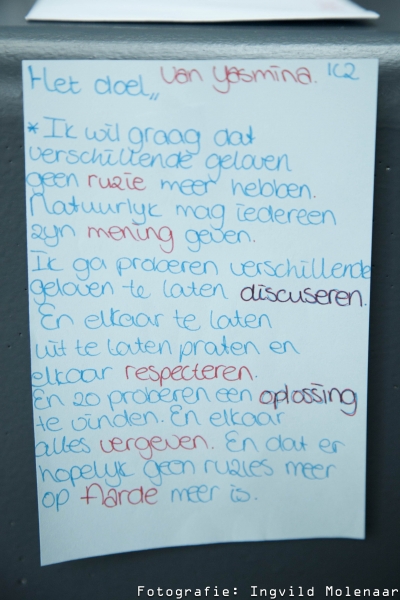 Het doel,, van Yasmina. 1C2
*Ik wil graag dat
verschillende geloven
geen ruzie meer hebben.
Natuurlijk mag iedereen
zijn mening geven.
Ik ga proberen verschillende
geloven te laten discuseren.
En elkaar te laten
uit te laten praten en
elkaar respecteren.
En zo proberen een oplossing
te vinden. En elkaar
alles vergeven. En dat er
hopelijk geen ruzies meer
op Aarde meer is.
Fotografie: Ingvild Molenaar